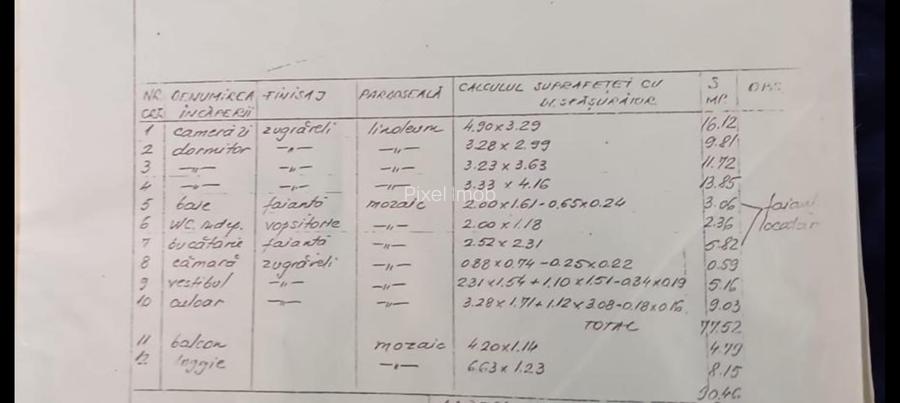 NR. DENUMIREA FINISAJ PARDOSEALĂ CALCULUL SUPRAFEȚEI CU S OBS.
CRT. ÎNCĂPERII DESFĂȘURĂTOR MP.
1 camera zi zugrăveli linoleum 4.90 x 3.29 16.12
2 dormitor —"— —"— 3.28 x 2.99 9.81
3 —"— —"— —"— 3.23 x 3.63 11.72
4 —"— —"— —"— 3.33 x 4.16 13.85
Pixel Imob
5 baie faianță mozaic 2.00 x 1.61 - 0.65 x 0.24 3.06 faianț
6 WC. indep. vopsitorie —"— 2.00 x 1.18 2.36 locatar
7 bucătărie faianță —"— 2.52 x 2.31 5.82
8 cămară zugrăveli —"— 0.88 x 0.74 - 0.25 x 0.22 0.59
9 vestibul —"— —"— 2.31 x 1.54 + 1.10 x 1.51 - 0.34 x 0.19 5.16
10 culoar —"— —"— 3.28 x 1.71 + 1.12 x 3.08 - 0.18 x 0.16 9.03
TOTAL 77.52
11 balcon mozaic 4.20 x 1.14 4.79
12 loggie —"— 6.63 x 1.23 8.15
90.46